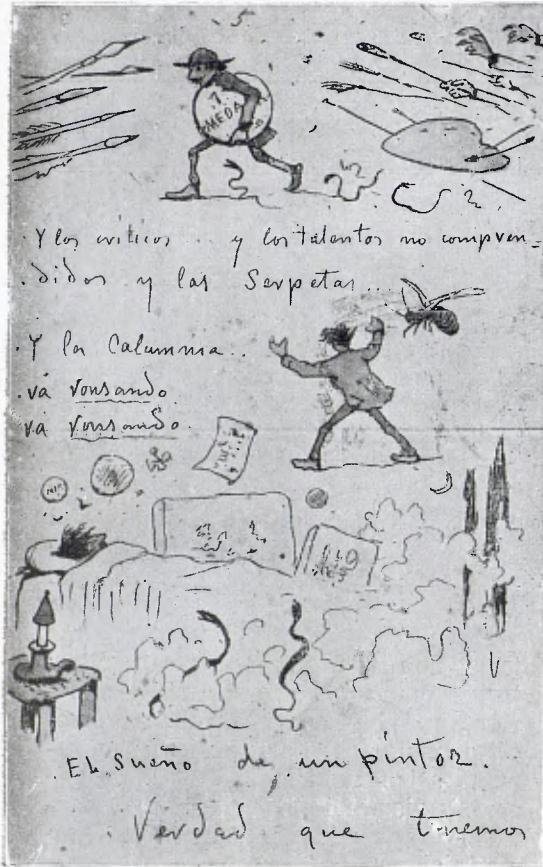 5
1
MEDA
Y los criticos... y los talentos no compren=
didos y las Serpetas...
Y la Calumnia..
vá ronsando
va ronsando.
El Sueño de un pintor.
Verdad que tenemos